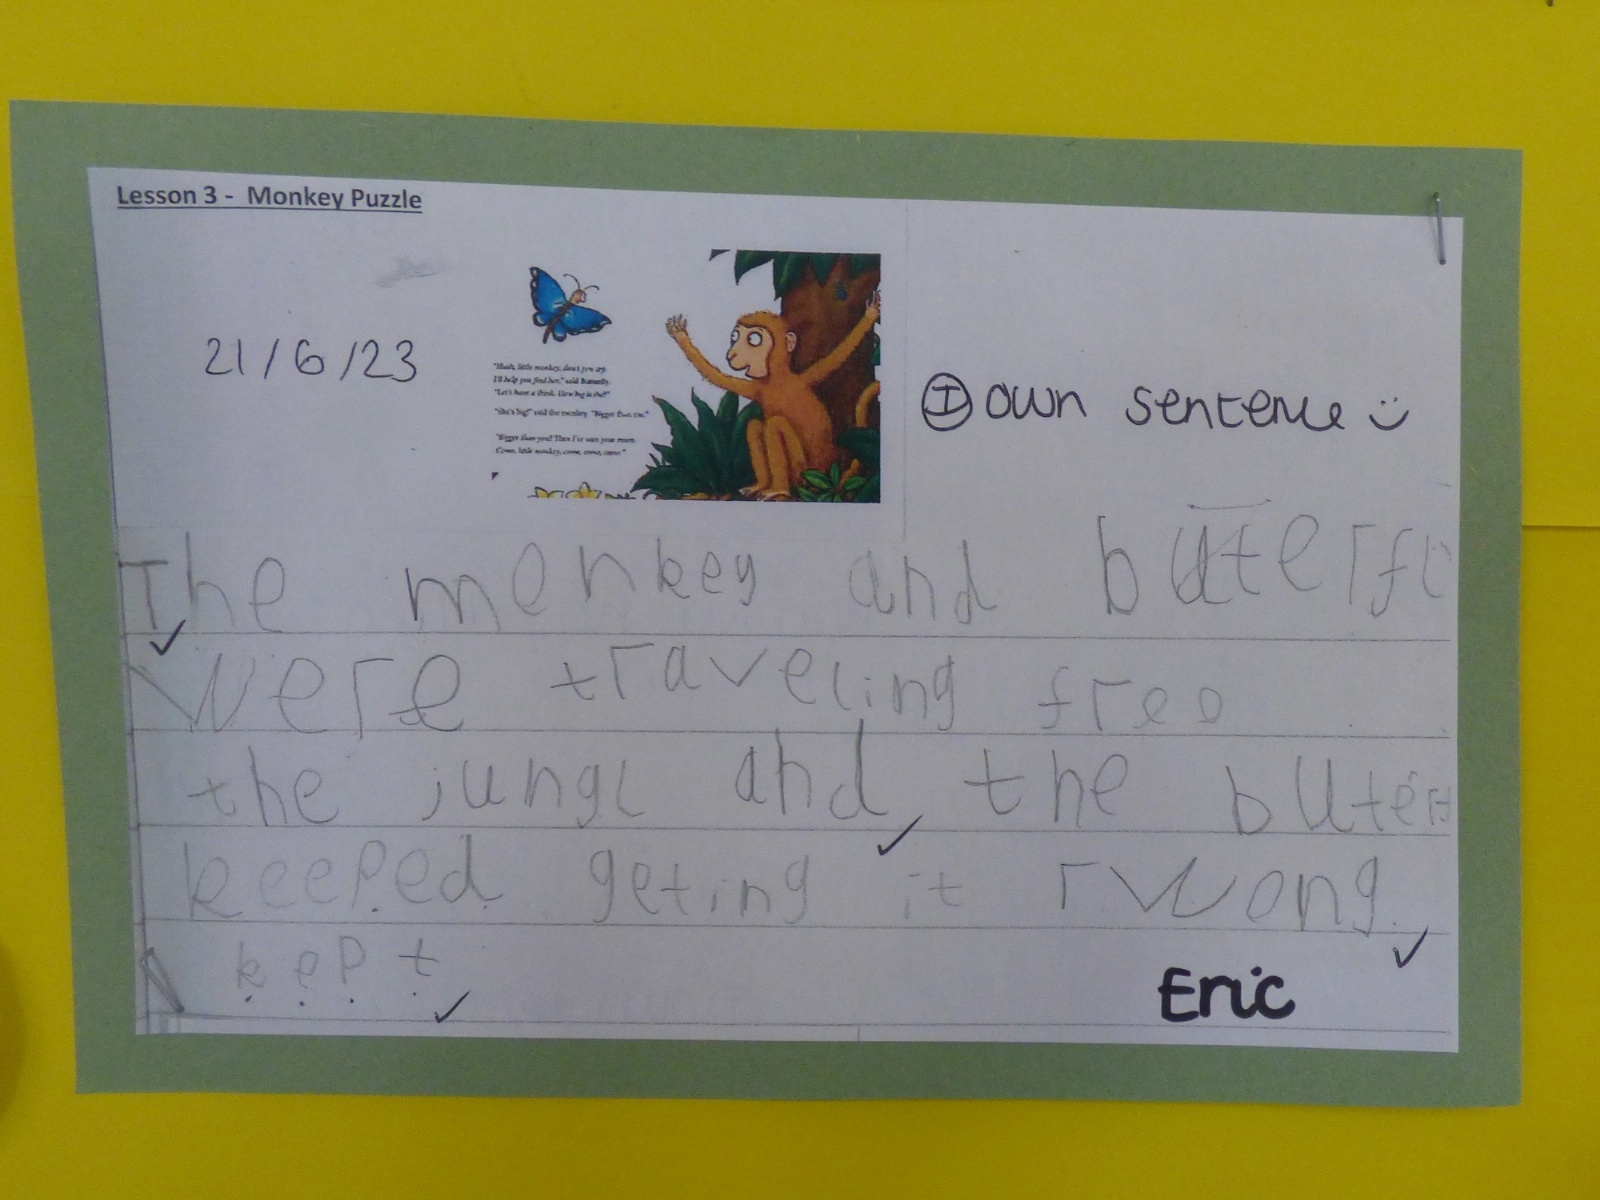 Lesson 3 - Monkey Puzzle
21/6/23
"Hush, little monkey, don't you cry.
I'll help you find her," said Butterfly.
"Let's have a think. How big is she?"
"She's big!" said the monkey. "Bigger than me."
"Bigger than you? Then I've seen your mum.
Come, little monkey, come, come, come."
I own sentence
The monkey and buterfl
were traveling freo
the jungl and the buterf
keeped geting it rwong.
kept
Eric